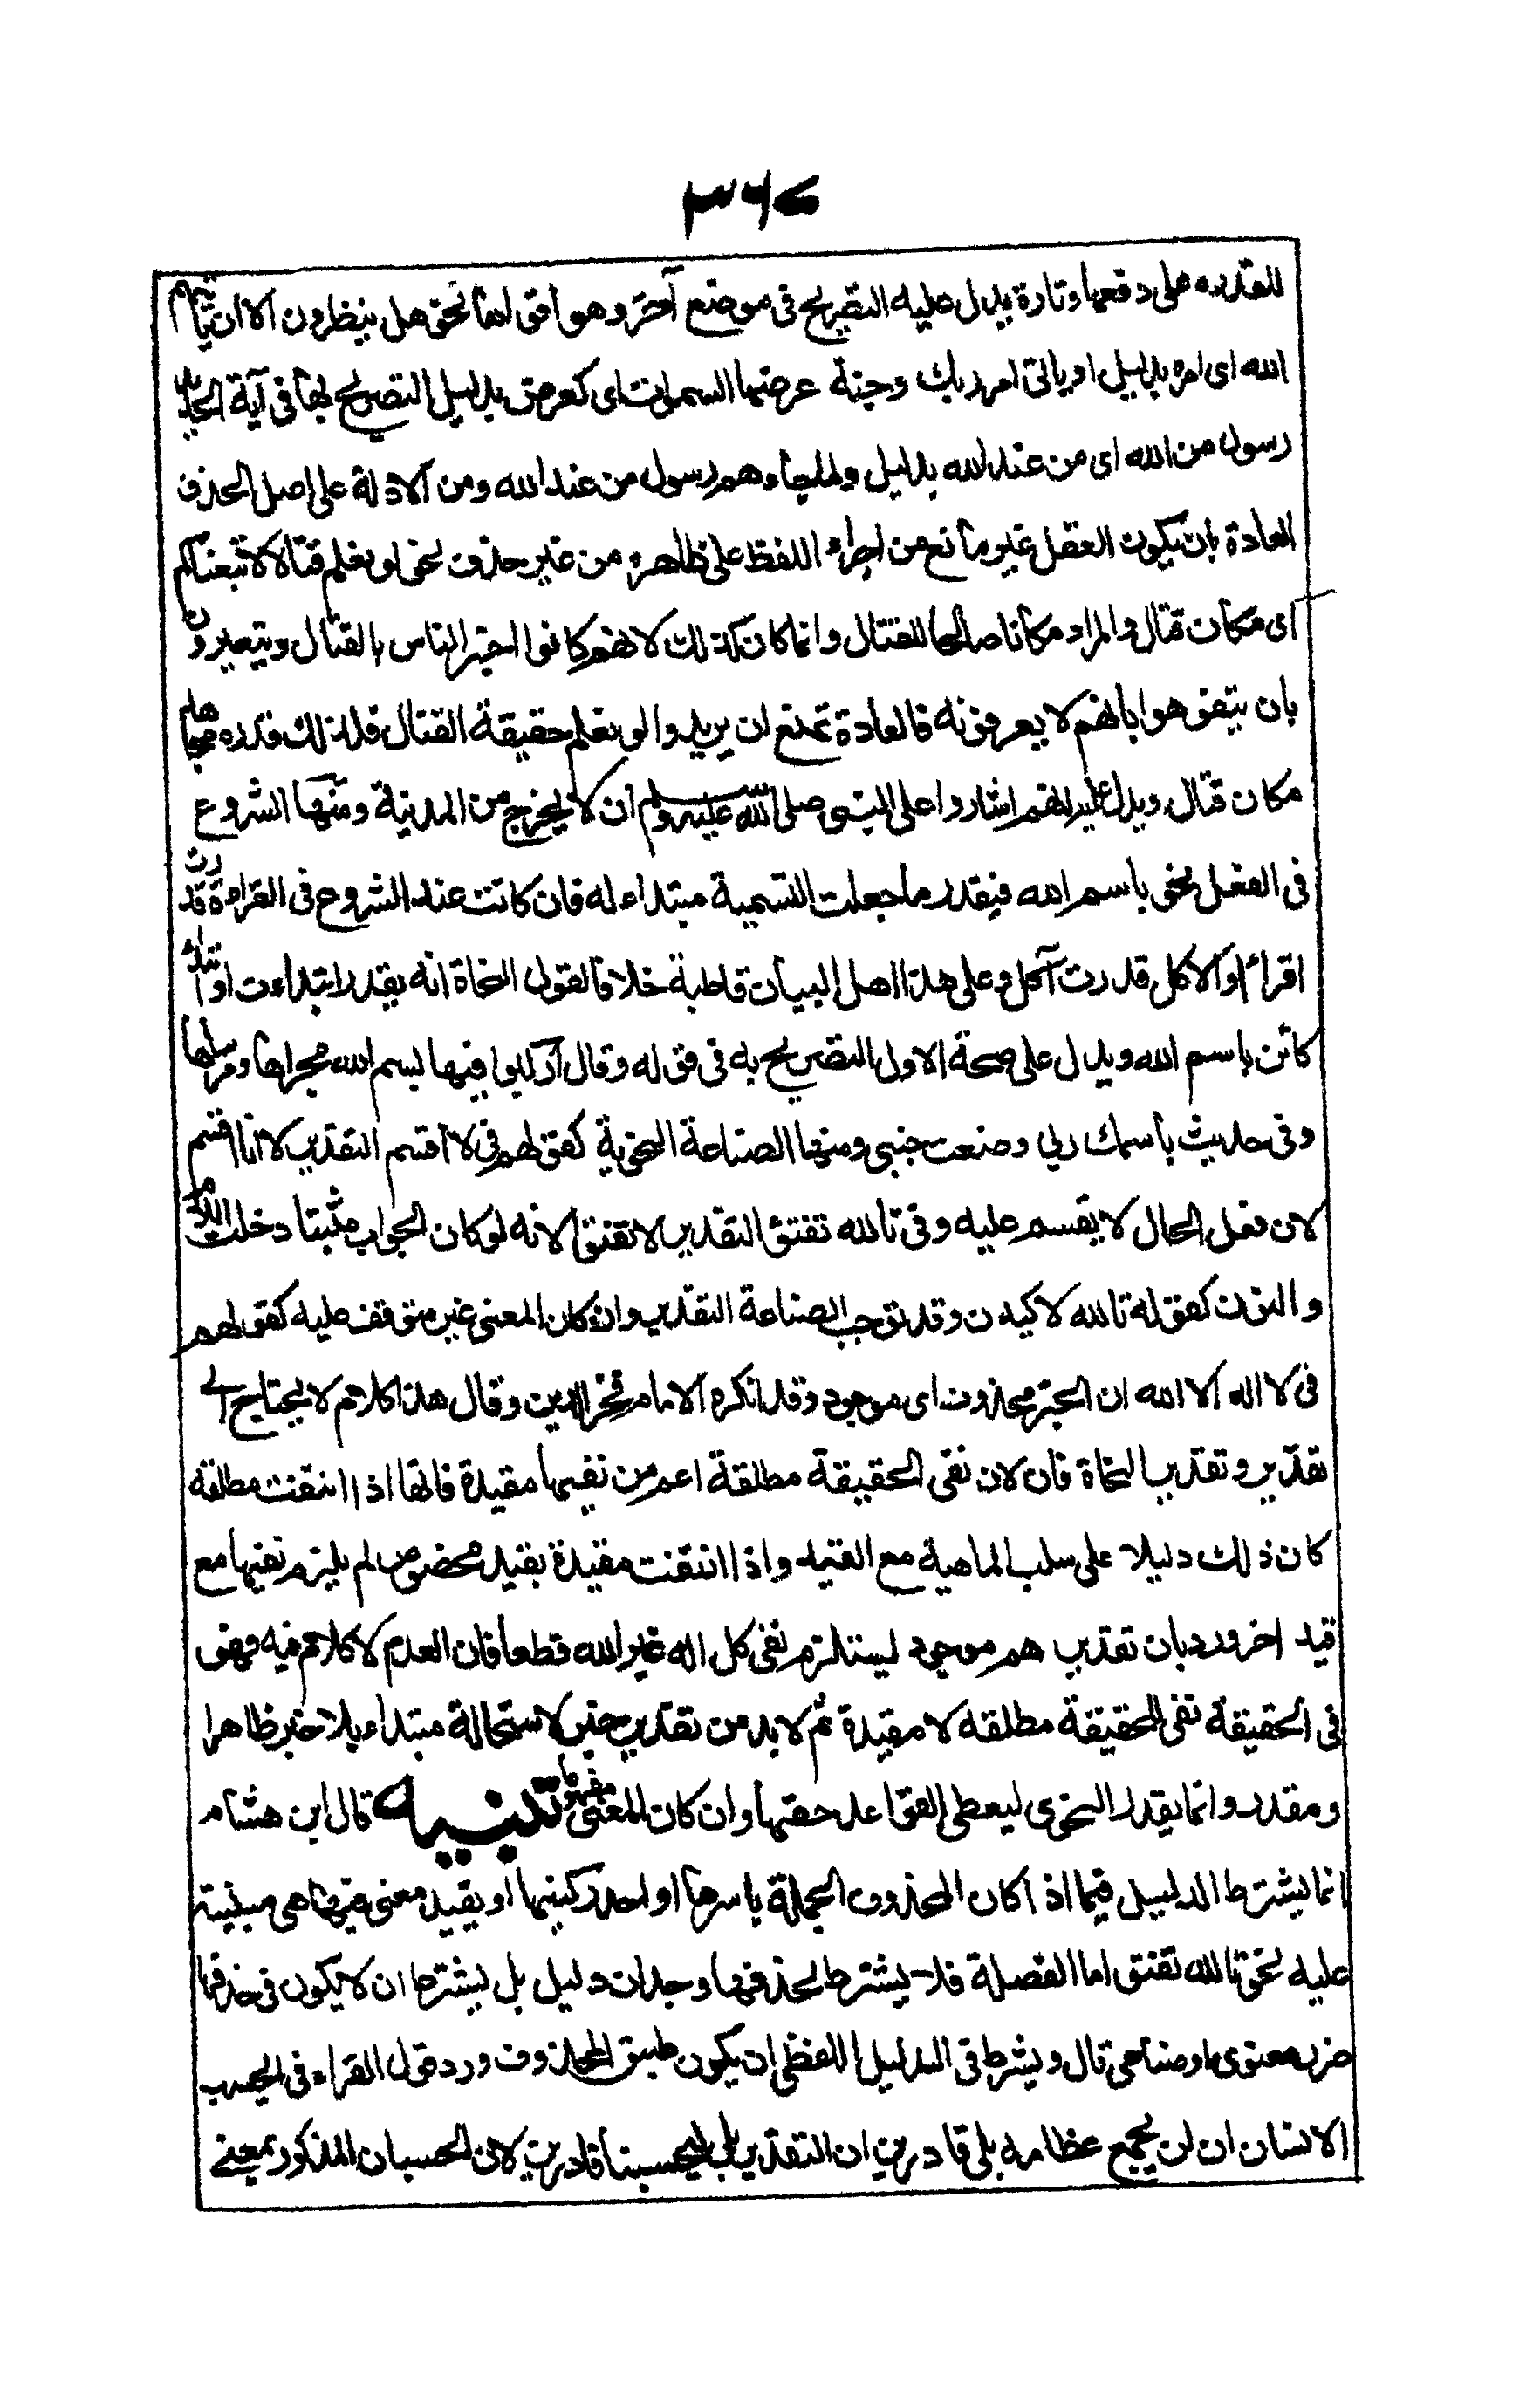 ٣٦٤
للقدرته على دفعها وتارة يدل عليه التصريح فى موضع آخر وهو أقواها نحو هل ينظرون الا ان يأتيهم
الله اى امره بدليل او يأتى امر ربك وجنة عرضها السموات اى كعرض بدليل التصريح بها فى آية الحديد
رسول من الله اى من عند الله بدليل ولما جاءهم رسول من عند الله ومن الادلة على اصل الحذف
العادة بان يكون العقل غير مانع من اجراء اللفظ على ظاهره من غير حذف نحو لو نعلم قتالا لاتبعناكم
اى مكان قتال والمراد مكانا صالحا للقتال وانما كان كذلك لانهم كانوا اخبر الناس بالقتال ويتعيرون
بان يتفوهوا بانهم لا يعرفونه فالعادة تمنع ان يريدوا لو نعلم حقيقة القتال فلذلك قدره مجاهد
مكان قتال ويدل عليه انهم اشاروا على النبى صلى الله عليه وسلم ان لا يخرج من المدينة ومنها الشروع
فى الفعل نحو باسم الله فيقدر ما جعلت التسمية مبتداء له فان كانت عند الشروع فى القراءة قدرت
اقراء او الاكل قدرت آكل وعلى هذا اهل البيان قاطبة خلافا لقول النحاة انه يقدر ابتداءت او ابتدائى
كائن باسم الله ويدل على صحة الاول التصريح به فى قوله وقال اركبوا فيها بسم الله مجراها ومرساها
وفى حديث باسمك ربي وضعت جنبى ومنها الصناعة النحوية كقولهم فى لا اقسم التقدير لانا اقسم
لان فعل الحال لا يقسم عليه وفى تالله تفتؤ التقدير لا تفتؤ لانه لو كان الجواب مثبتا دخلت اللام
والنون كقوله تالله لاكيدن وقد توجب الصناعة التقدير وان كان المعنى غير متوقف عليه كقولهم
فى لا اله الا الله ان الخبر محذوف اى موجود وقد انكره الامام فخر الدين وقال هذا كلام لا يحتاج الى
تقدير وتقدير النحاة فان لان نفى الحقيقة مطلقة اعم من نفيها مقيدة فانها اذا انتفت مطلقه
كان ذلك دليلا على سلب الماهية مع القيد واذا انتفت مقيدة بقيد مخصوص لم يلزم نفيها مع
قيد اخر ورد بان تقدير هم موجود ليستلزم نفى كل اله غير الله قطعا فان العدم لا كلام فيه فهو
فى الحقيقة نفى للحقيقة مطلقه لا مقيدة ثم لا بد من تقدير خبر لاستحالة مبتداء بلا خبر ظاهرا
ومقدر وانما يقدر النحوى ليعطى القواعد حقها وان كان المعنى مفهوما تنبيه قال ابن هشام
انما يشترط الدليل فيما اذا كان المحذوف الجملة باسرها او احد ركنيها او يفيد معنى فيها هى مبنية
عليه نحو تالله تفتؤ اما الفضلة فلا يشترط لحذفها وجدان دليل بل يشترط ان لا يكون فى حذفها
ضرر معنوى او صناعى قال ويشرط فى الدليل اللفظى ان يكون طبق المحذوف ورد قول الفراء فى ايحسب
الانسان ان لن نجمع عظامه بلى قادرين ان التقدير بلى ليحسبنا قادرين لان الحسبان المذكور بمعنى